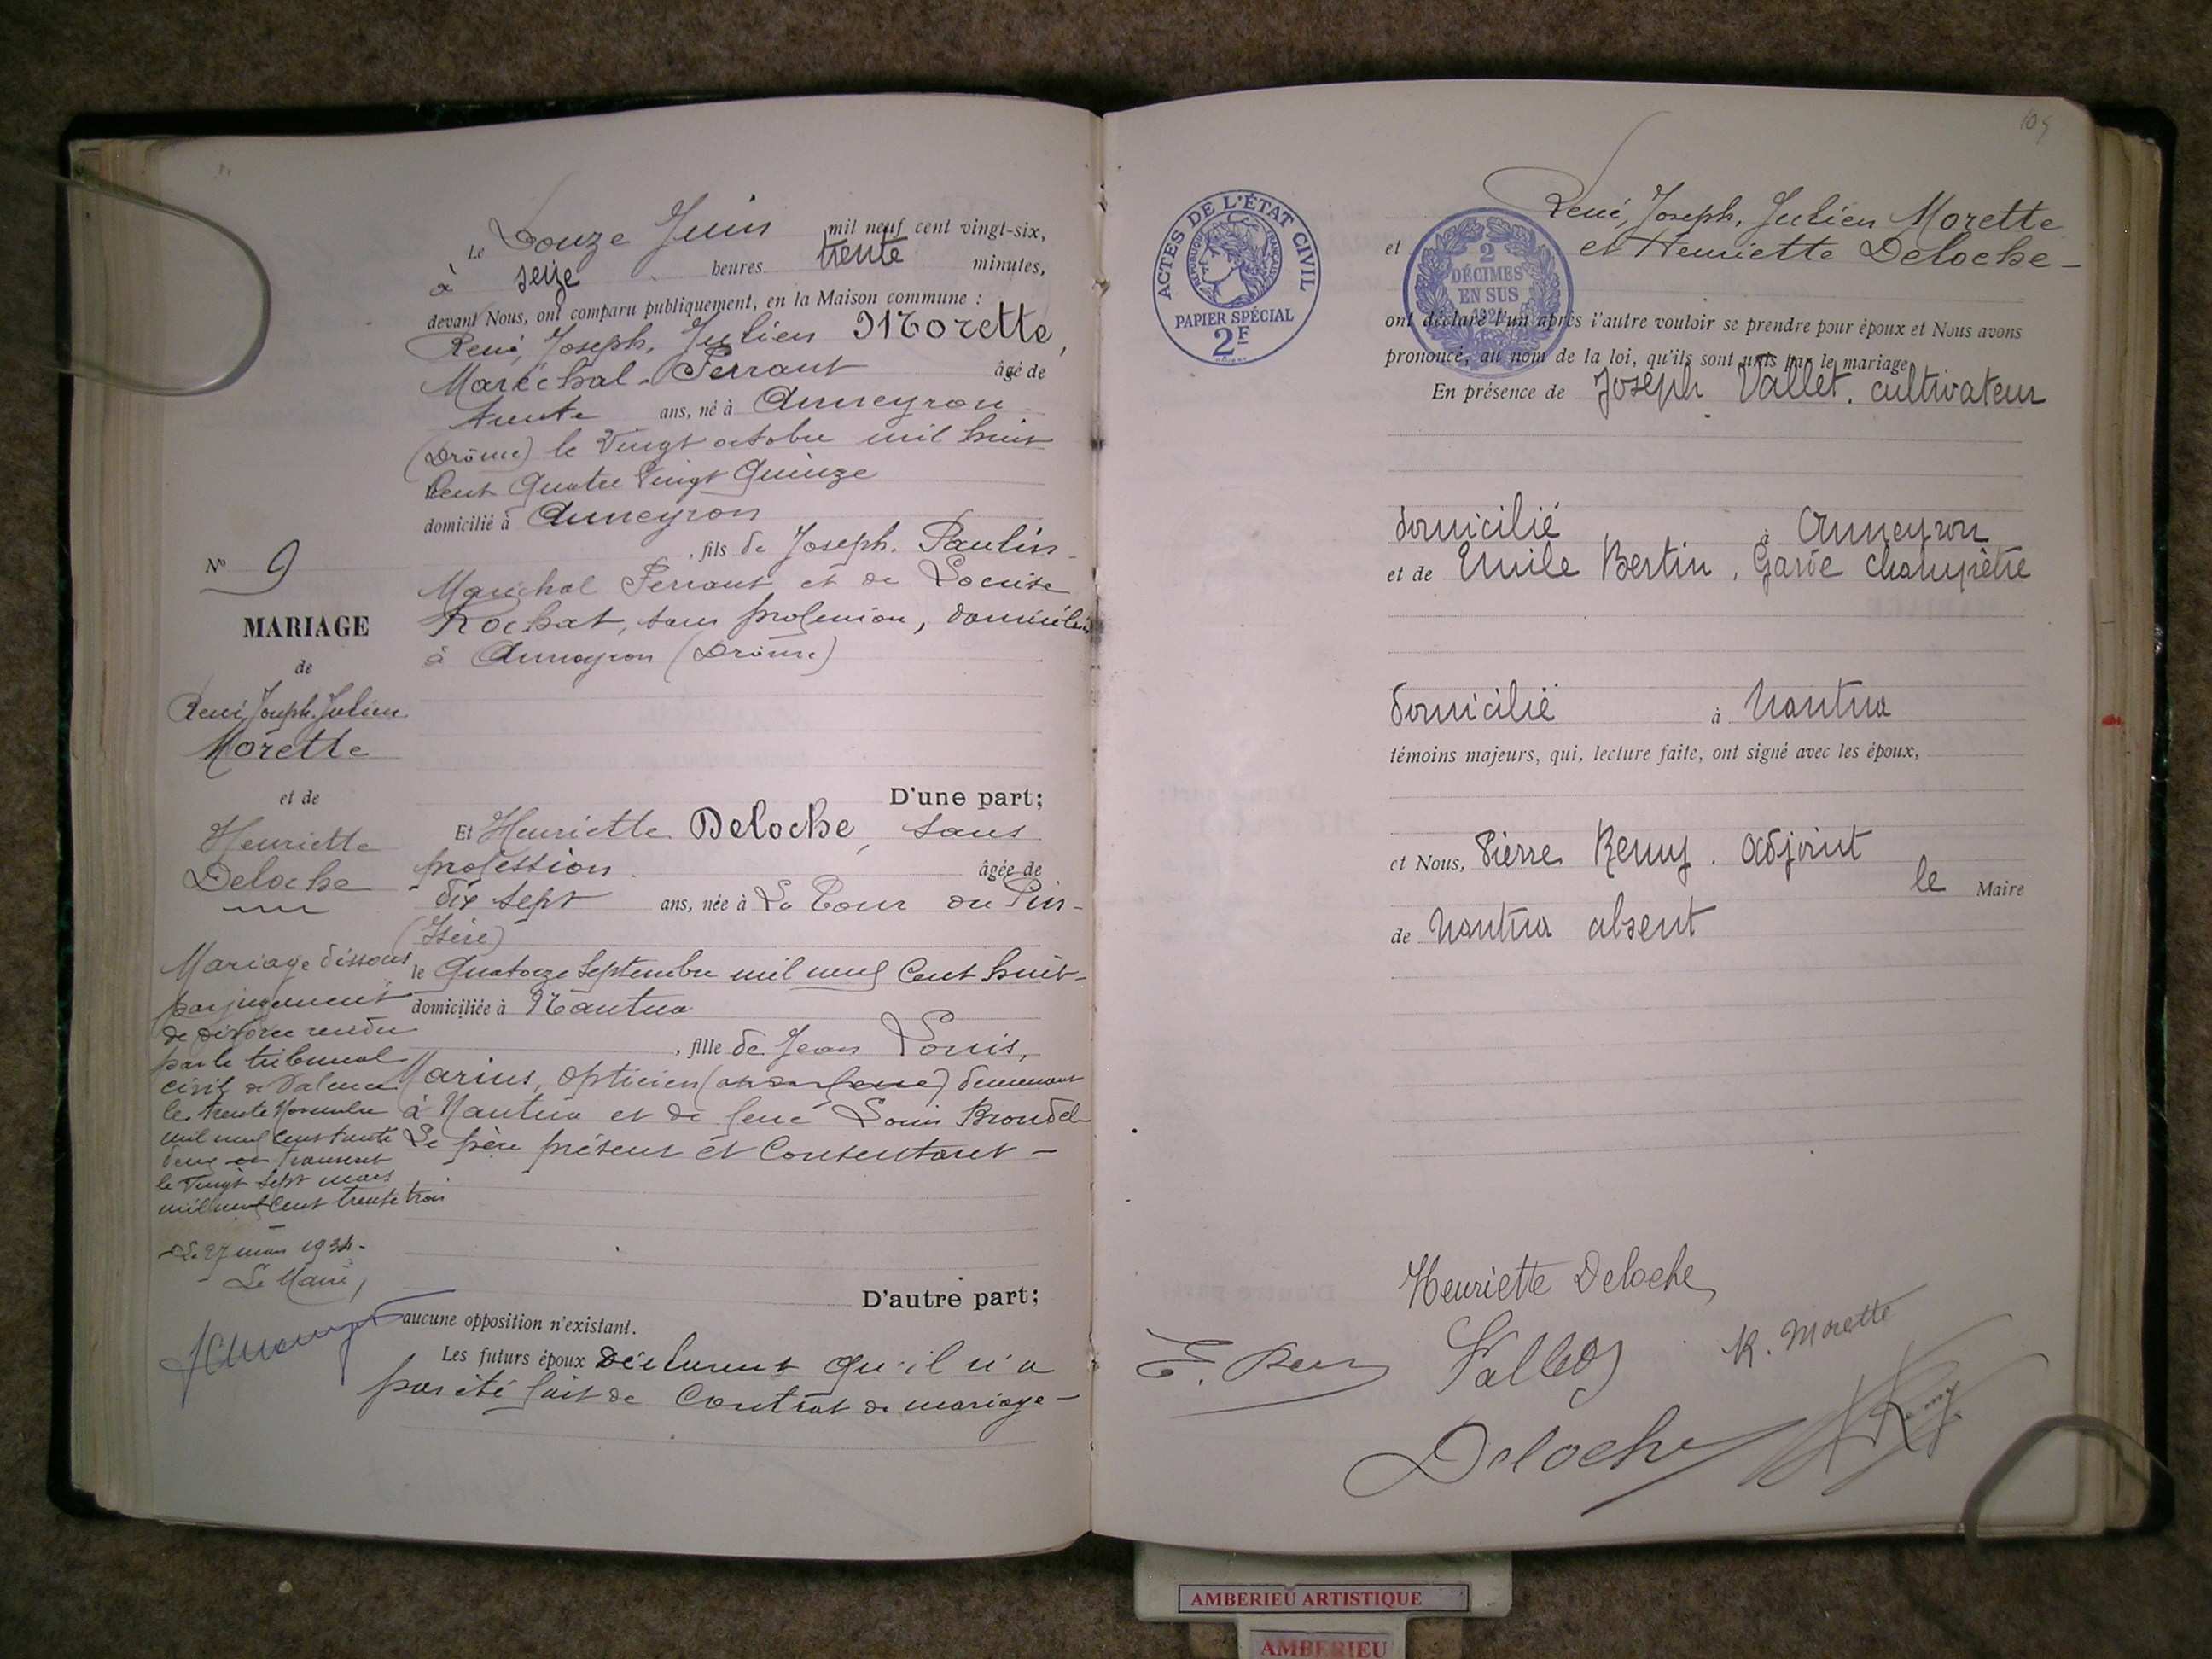 Le Douze Juin mil neuf cent vingt-six,
à seize heures trente minutes,
devant Nous, ont comparu publiquement, en la Maison commune :
René, Joseph, Julien Morette,
Maréchal-Ferrant âgé de
trente ans, né à Anneyron
(Drôme) le Vingt octobre mil huit
Cent Quatre Vingt Quinze
domicilié à Anneyron
, fils de Joseph, Paulin
Maréchal Ferrant et de Louise
Rochat, sans profession, domiciliés
à Anneyron (Drôme)
D'une part;
Et Henriette Deloche, sans
profession âgée de
dix sept ans, née à La Tour du Pin-
(Isère)
le Quatorze Septembre mil neuf Cent huit-
domiciliée à Nantua
, fille de Jean Louis,
Marius, opticien demeurant
à Nantua et de Louis Broudel
Le père présent et Consentant -
D'autre part;
aucune opposition n'existant.
Les futurs époux Déclarent qu'il n'a
pas été fait de Contrat de mariage -
N° 9
MARIAGE
de
René, Joseph, Julien
Morette
et de
Henriette
Deloche
Mariage dissous
par jugement
de divorce rendu
par le tribunal
civil de Valence
le trente Novembre
mil neuf cent trente
deux transcrit
le Vingt sept mars
mil neuf Cent trente trois
Le 27 mars 1934-
Le Maire,
109
ACTES DE L'ÉTAT CIVIL
RÉPUBLIQUE FRANÇAISE
PAPIER SPÉCIAL
2F
2
DÉCIMES
EN SUS
René, Joseph, Julien Morette
et et Henriette Deloche -
ont déclaré l'un après l'autre vouloir se prendre pour époux et Nous avons
prononcé, au nom de la loi, qu'ils sont unis par le mariage
En présence de Joseph Vallet, cultivateur
domicilié à Anneyron
et de Emile Bertin, Garde champêtre
domicilié à Nantua
témoins majeurs, qui, lecture faite, ont signé avec les époux,
et Nous, Pierre Remy, Adjoint
le Maire
de Nantua absent
Henriette Deloche
Vallet
R. Morette
Deloche
Remy
AMBERIEU ARTISTIQUE
AMBERIEU